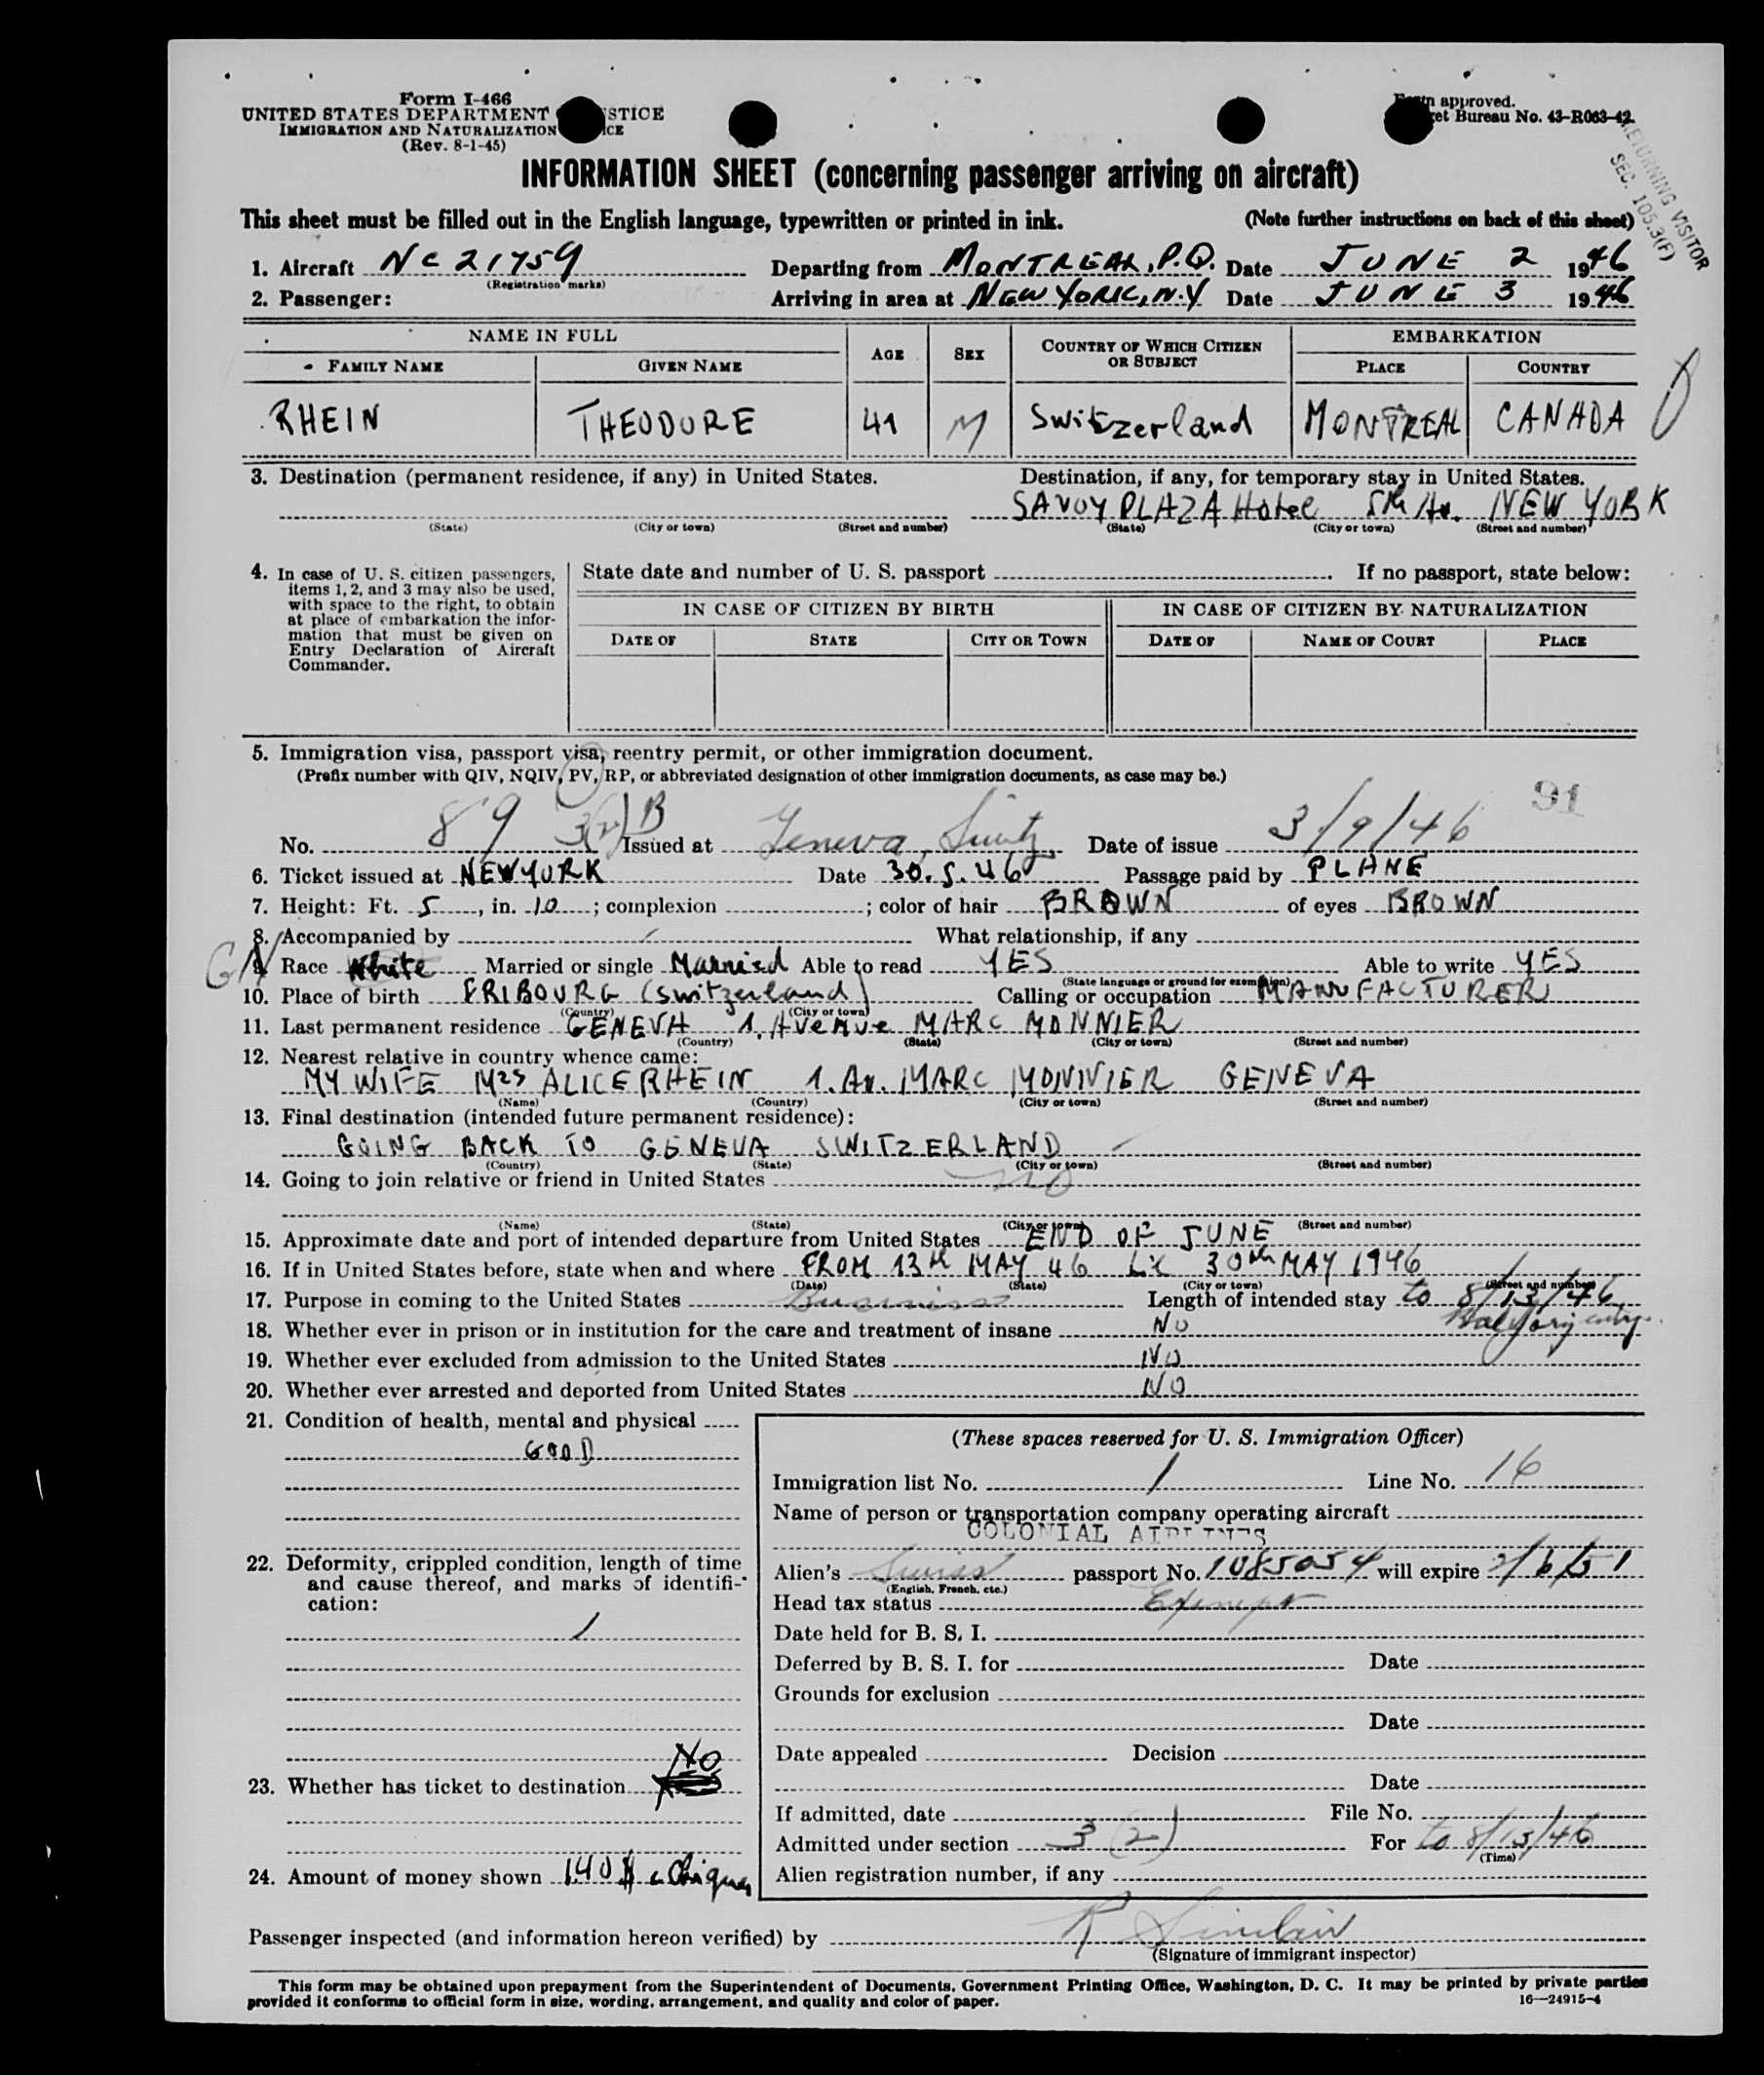 Form I-466
UNITED STATES DEPARTMENT STICE
IMMIGRATION AND NATURALIZATION ICE
(Rev. 8-1-45)
n approved.
et Bureau No. 43-R063-42.
RETURNING VISITOR
SEC. 105.3(F)
INFORMATION SHEET (concerning passenger arriving on aircraft)
This sheet must be filled out in the English language, typewritten or printed in ink. (Note further instructions on back of this sheet)
1. Aircraft NC 21759 Departing from MONTREAL, P.Q. Date JUNE 2 1946
(Registration marks)
2. Passenger: Arriving in area at NEW YORK, N.Y Date JUNE 3 1946
NAME IN FULL AGE SEX COUNTRY OF WHICH CITIZEN OR SUBJECT EMBARKATION
FAMILY NAME GIVEN NAME PLACE COUNTRY
RHEIN THEODORE 41 M Switzerland MONTREAL CANADA
3. Destination (permanent residence, if any) in United States. Destination, if any, for temporary stay in United States.
SAVOY PLAZA Hotel 5th Av. NEW YORK
(State) (City or town) (Street and number) (State) (City or town) (Street and number)
4. In case of U. S. citizen passengers, items 1, 2, and 3 may also be used, with space to the right, to obtain at place of embarkation the information that must be given on Entry Declaration of Aircraft Commander.
State date and number of U. S. passport . If no passport, state below:
IN CASE OF CITIZEN BY BIRTH IN CASE OF CITIZEN BY NATURALIZATION
DATE OF STATE CITY OR TOWN DATE OF NAME OF COURT PLACE
5. Immigration visa, passport visa, reentry permit, or other immigration document.
(Prefix number with QIV, NQIV, PV, RP, or abbreviated designation of other immigration documents, as case may be.)
91
No. 89 3(2) B Issued at Geneva, Switz Date of issue 3/9/46
6. Ticket issued at NEWYORK Date 30.5.46 Passage paid by PLANE
7. Height: Ft. 5, in. 10; complexion ; color of hair BROWN of eyes BROWN
8. Accompanied by / What relationship, if any
9. Race White Married or single Married Able to read YES Able to write YES
(State language or ground for exemption)
10. Place of birth FRIBOURG (Switzerland) Calling or occupation MANUFACTURER
(Country) (City or town)
11. Last permanent residence GENEVA 1. Avenue MARC MONNIER
(Country) (State) (City or town) (Street and number)
12. Nearest relative in country whence came:
MY WIFE Mrs ALICE RHEIN 1. Av. MARC MONNIER GENEVA
(Name) (Country) (City or town) (Street and number)
13. Final destination (intended future permanent residence):
GOING BACK TO GENEVA SWITZERLAND
(Country) (State) (City or town) (Street and number)
14. Going to join relative or friend in United States no
(Name) (State) (City or town) (Street and number)
15. Approximate date and port of intended departure from United States END OF JUNE
16. If in United States before, state when and where FROM 13th MAY 46 30th MAY 1946
(Date) (State) (City or town) (Street and number)
17. Purpose in coming to the United States Business Length of intended stay to 8/13/46
18. Whether ever in prison or in institution for the care and treatment of insane NO
19. Whether ever excluded from admission to the United States NO
20. Whether ever arrested and deported from United States NO
21. Condition of health, mental and physical
GOOD
22. Deformity, crippled condition, length of time and cause thereof, and marks of identification:
/
23. Whether has ticket to destination NO
24. Amount of money shown 140 $
(These spaces reserved for U. S. Immigration Officer)
Immigration list No. 1 Line No. 16
Name of person or transportation company operating aircraft
COLONIAL AIRLINES
Alien's Swiss passport No. 1085054 will expire 2/6/51
(English, French, etc.)
Head tax status Exempt
Date held for B. S. I.
Deferred by B. S. I. for Date
Grounds for exclusion
Date
Date appealed Decision
Date
If admitted, date File No.
Admitted under section 3 (2) For to 8/13/46
(Time)
Alien registration number, if any
Passenger inspected (and information hereon verified) by R Sinclair
(Signature of immigrant inspector)
This form may be obtained upon prepayment from the Superintendent of Documents, Government Printing Office, Washington, D. C. It may be printed by private parties
provided it conforms to official form in size, wording, arrangement, and quality and color of paper. 16—24915-4